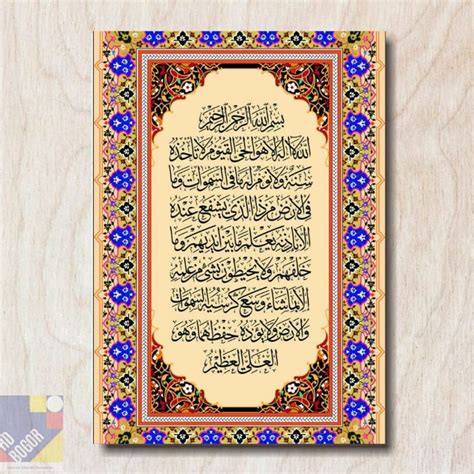 بسم الله الرحمن الرحيم
الله لا اله الا هو الحي القيوم لا تأخذه
سنة ولا نوم له ما في السموات وما
في الارض من ذا الذي يشفع عنده
الا باذنه يعلم ما بين ايديهم وما
خلفهم ولا يحيطون بشيء من علمه
الا بما شاء وسع كرسيه السموات
والارض ولا يوده حفظهما وهو
العلي العظيم
BOGOR